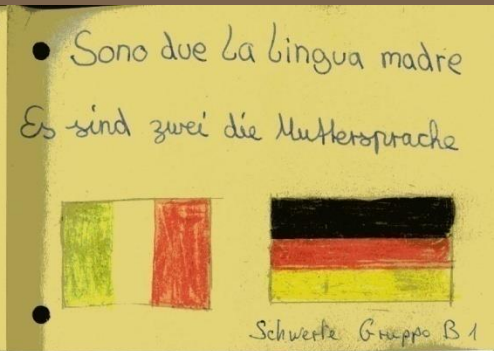 Sono due la lingua madre
Es sind zwei die Muttersprache
Schwerte Gruppo B1